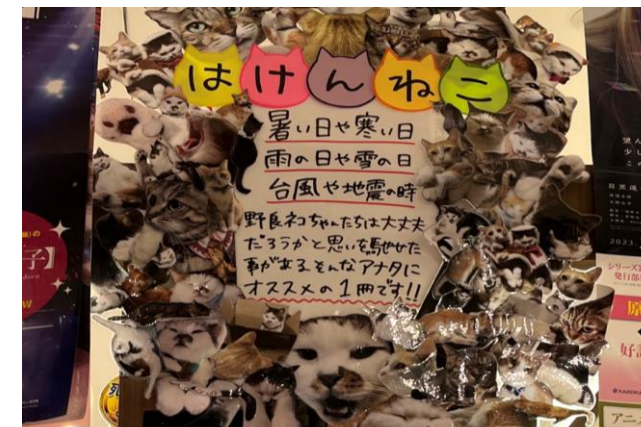 はけんねこ
暑い日や寒い日
雨の日や雪の日
台風や地震の時
野良ネコちゃんたちは大丈夫
だろうかと思いを馳せた
事がある、そんなアナタに
オススメの1冊です!!
子】